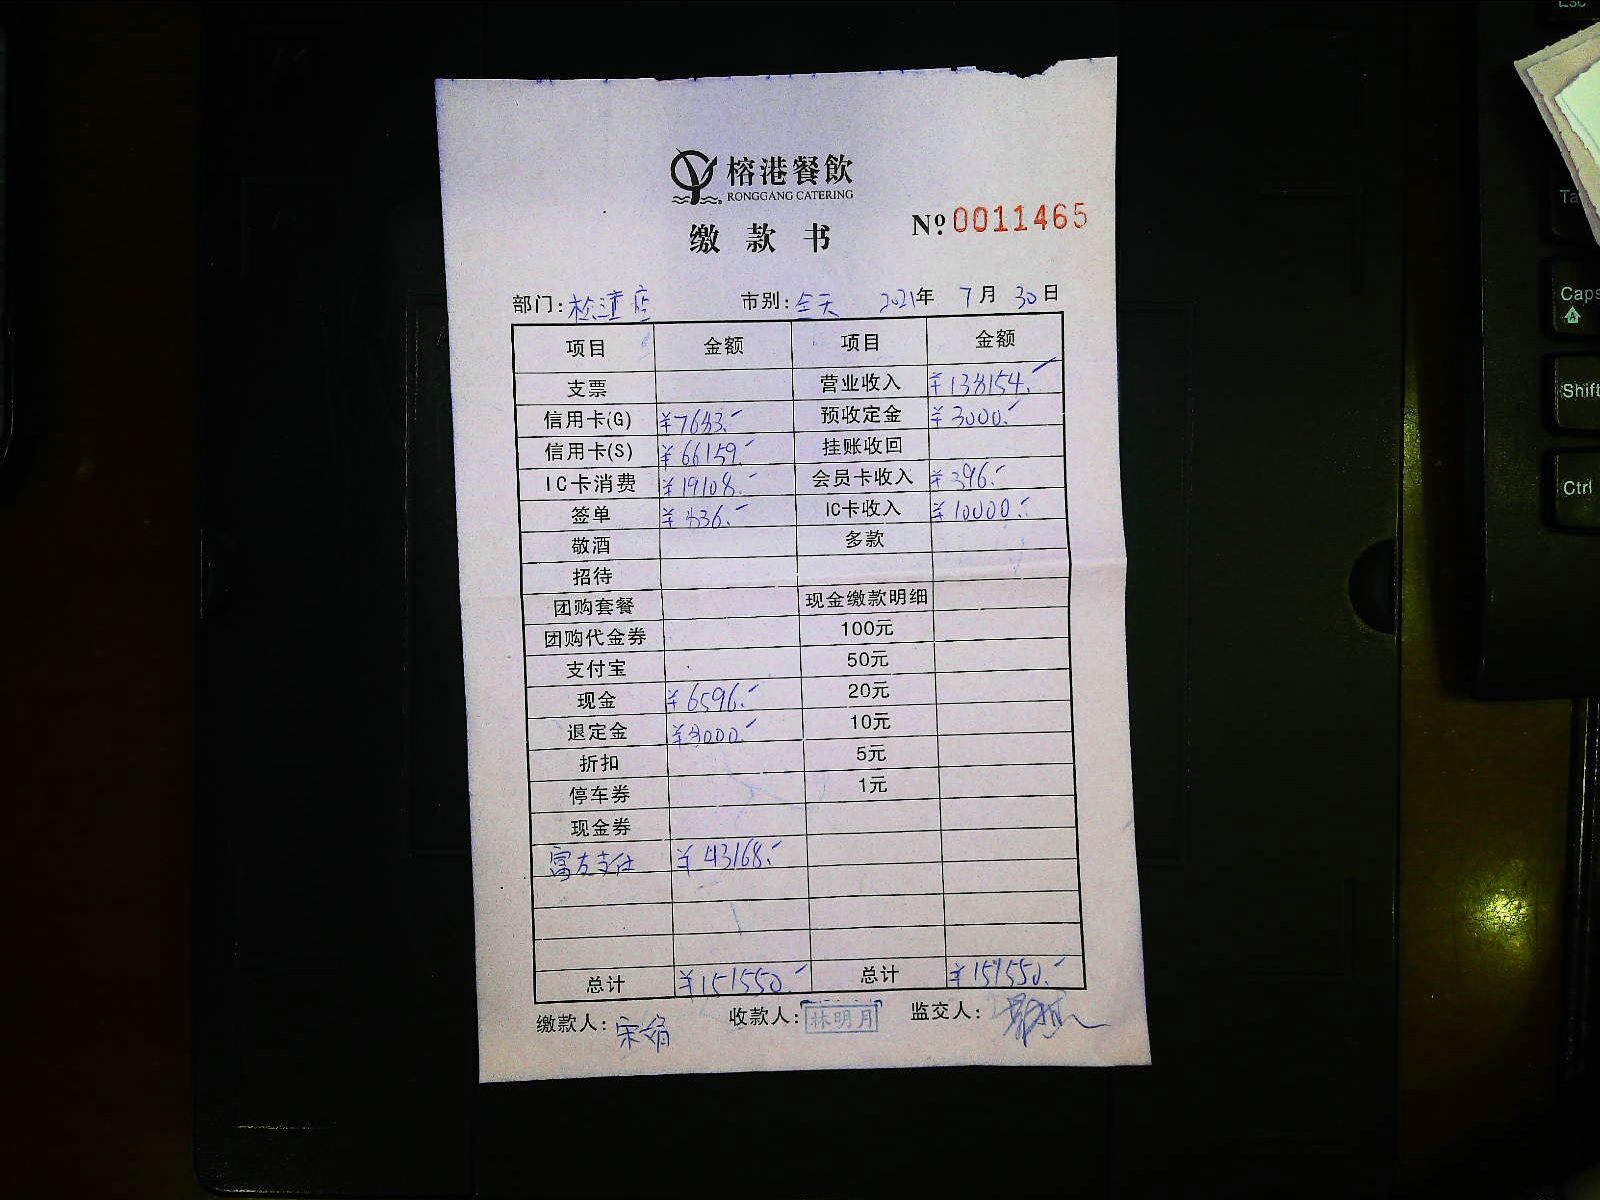 榕港餐飲
RONGGANG CATERING
缴款书
Nº 0011465
部门: 店 市别: 全天 2021年 7月 30日
项目 金额 项目 金额
支票 营业收入 ¥138154.-
信用卡(G) ¥7683.- 预收定金 ¥3000.-
信用卡(S) ¥66159.- 挂账收回
IC卡消费 ¥19108.- 会员卡收入 ¥396.-
签单 ¥836.- IC卡收入 ¥10000.-
敬酒 多款
招待
团购套餐 现金缴款明细
团购代金券 100元
支付宝 50元
现金 ¥6596.- 20元
退定金 ¥8000.- 10元
折扣 5元
停车券 1元
现金券
富友支付 ¥43168.-
总计 ¥151550.- 总计 ¥151550.-
缴款人: 宋娟 收款人: 林明月 监交人:
Esc
Ta
Caps
A
Shift
Ctrl